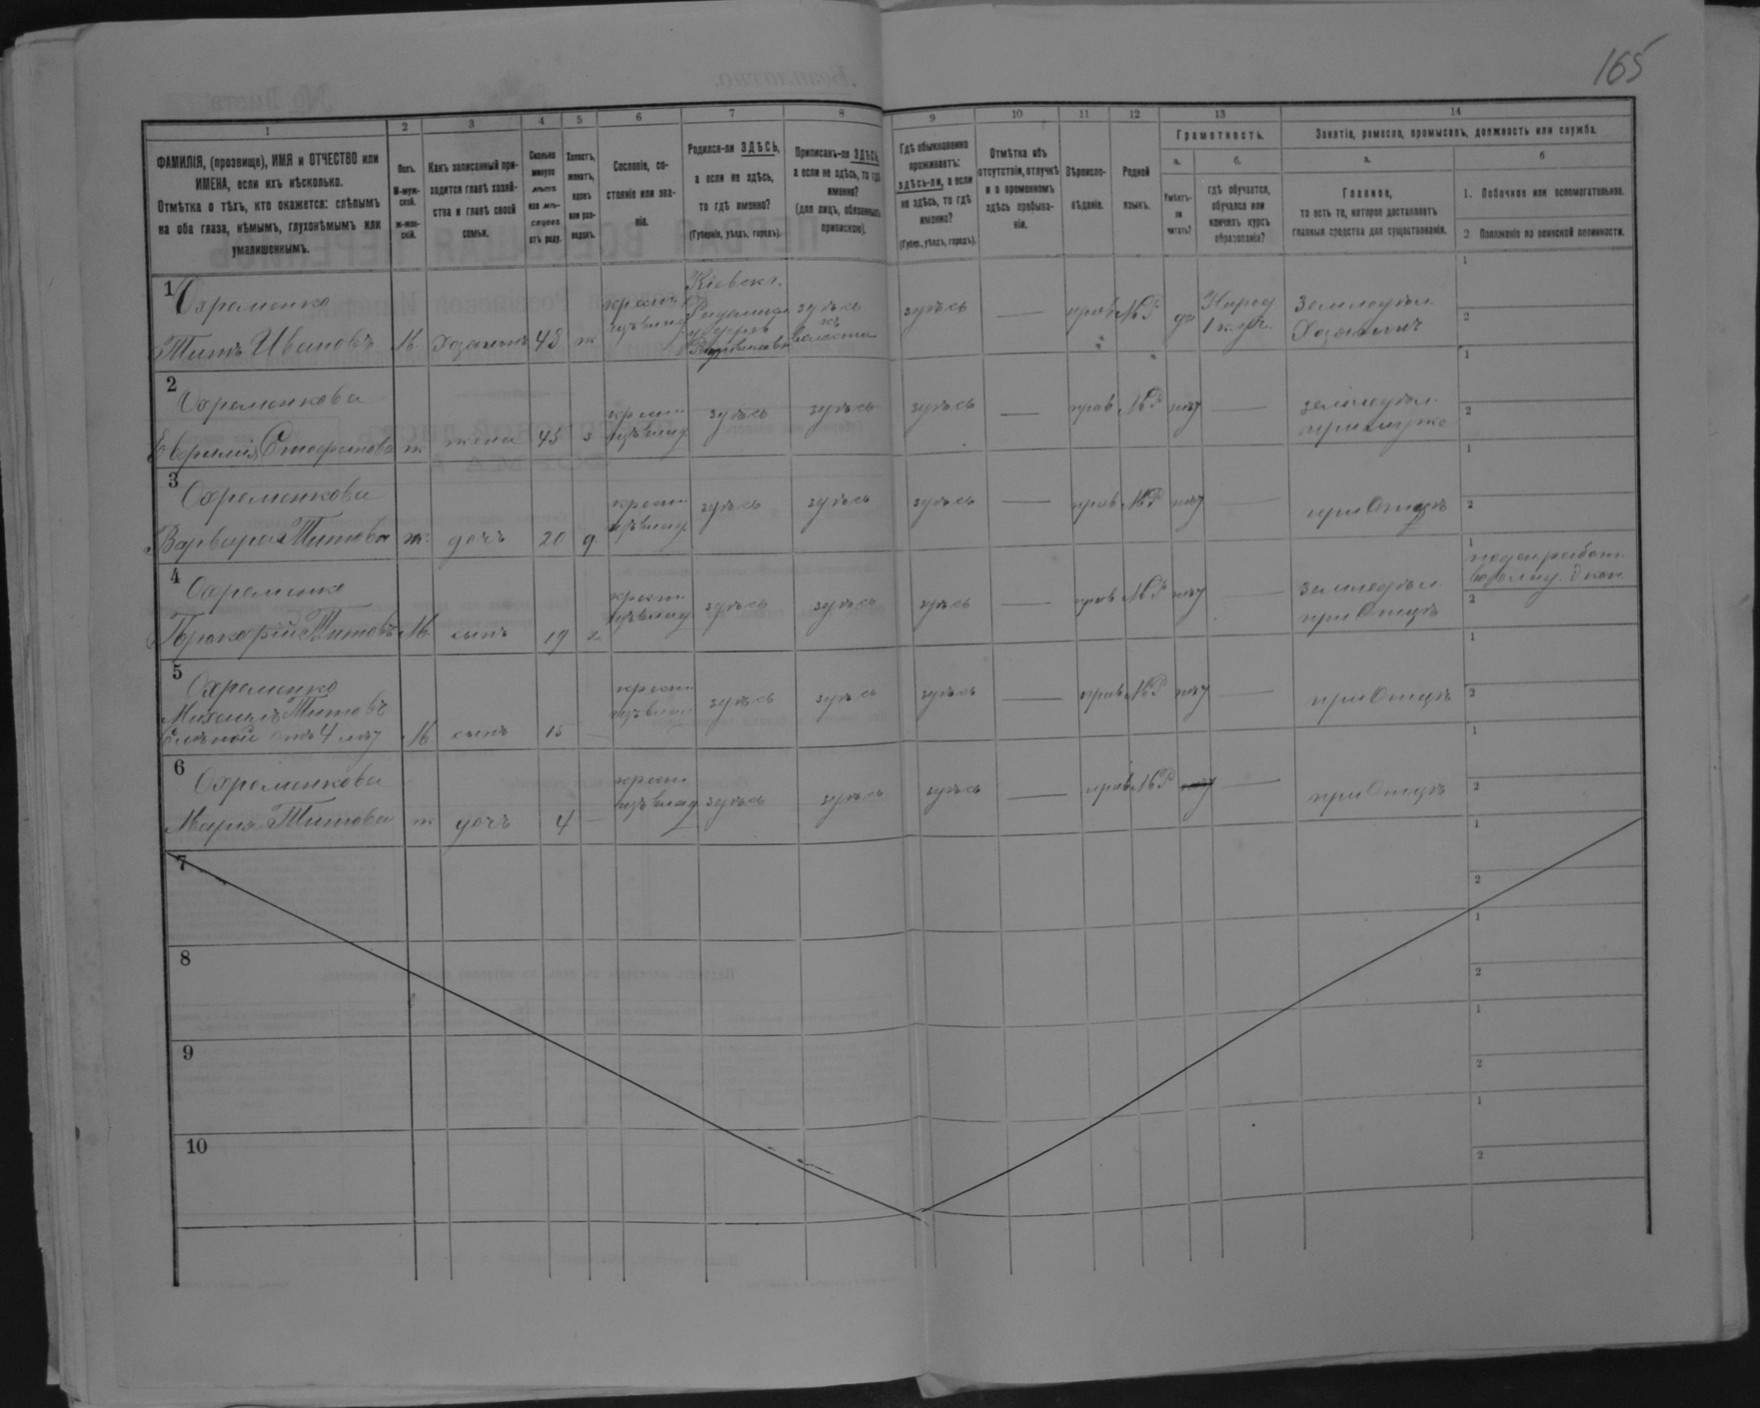 165
1
2
3
4
5
6
7
8
9
10
11
12
13
14
ФАМИЛІЯ, (прозвище), ИМЯ и ОТЧЕСТВО или
ИМЕНА, если ихъ нѣсколько.
Отмѣтка о тѣхъ, кто окажется: слѣпымъ
на оба глаза, нѣмымъ, глухонѣмымъ или
умалишеннымъ.
Полъ.
М-муж-
ской.
ж-жен-
скій.
Какъ записанный при-
ходится главѣ хозяй-
ства и главѣ своей
семьи.
Сколько
минуло
лѣтъ
или мѣ-
сяцевъ
отъ роду.
Холостъ,
женатъ,
вдовъ
или раз-
веденъ.
Сословіе, со-
стояніе или зва-
ніе.
Родился-ли ЗДѢСЬ,
а если не здѣсь,
то гдѣ именно?
(Губернія, уѣздъ, городъ).
Приписанъ-ли ЗДѢСЬ,
а если не здѣсь, то гдѣ
именно?
(для лицъ, обязанныхъ
припискою).
Гдѣ обыкновенно
проживаетъ:
здѣсь-ли, а если
не здѣсь, то гдѣ
именно?
(Губер., уѣздъ, городъ).
Отмѣтка объ
отсутствіи, отлучкѣ
и о временномъ
здѣсь пребыва-
ніи.
Вѣроиспо-
вѣданіе.
Родной
языкъ.
Грамотность.
а.
Умѣетъ-
ли
читать?
б.
гдѣ обучается,
обучался или
кончилъ курсъ
образованія?
Занятіе, ремесло, промыселъ, должность или служба.
а.
Главное,
то есть то, которое доставляетъ
главныя средства для существованія.
б
1. Побочное или вспомогательное.
2 Положеніе по воинской повинности.
1
Охременко
Титъ Ивановъ
М.
Хозяинъ
48
ж
Кіевск.
здѣсь
волости
здѣсь
—
прав
МР
да
Народ
Земледѣл.
Хозяинъ
1
2
2
Охременкова
Стефанова
ж
жена
45
з
крест
здѣсь
здѣсь
здѣсь
—
прав
МР
нѣт
—
земледѣл.
при мужѣ
1
2
3
Охременкова
Варвара Титова
ж
дочь
20
д
крест
здѣсь
здѣсь
здѣсь
—
прав
МР
нѣт
—
при Отцѣ
1
2
4
Охременко
Прокофій Титовъ
М.
сынъ
19
х
крест
здѣсь
здѣсь
здѣсь
—
прав
МР
нѣт
—
земледѣл
при Отцѣ
1
2
5
Охременко
Михаилъ Титовъ
слѣпой отъ 4 лѣт
М.
сынъ
15
—
крест
здѣсь
здѣсь
здѣсь
—
прав
МР
нѣт
—
при Отцѣ
1
2
6
Охременкова
Марія Титова
ж
дочь
4
—
крест
здѣсь
здѣсь
здѣсь
—
прав
МР
нѣт
—
при Отцѣ
1
2
7
1
2
8
1
2
9
1
2
10
1
2